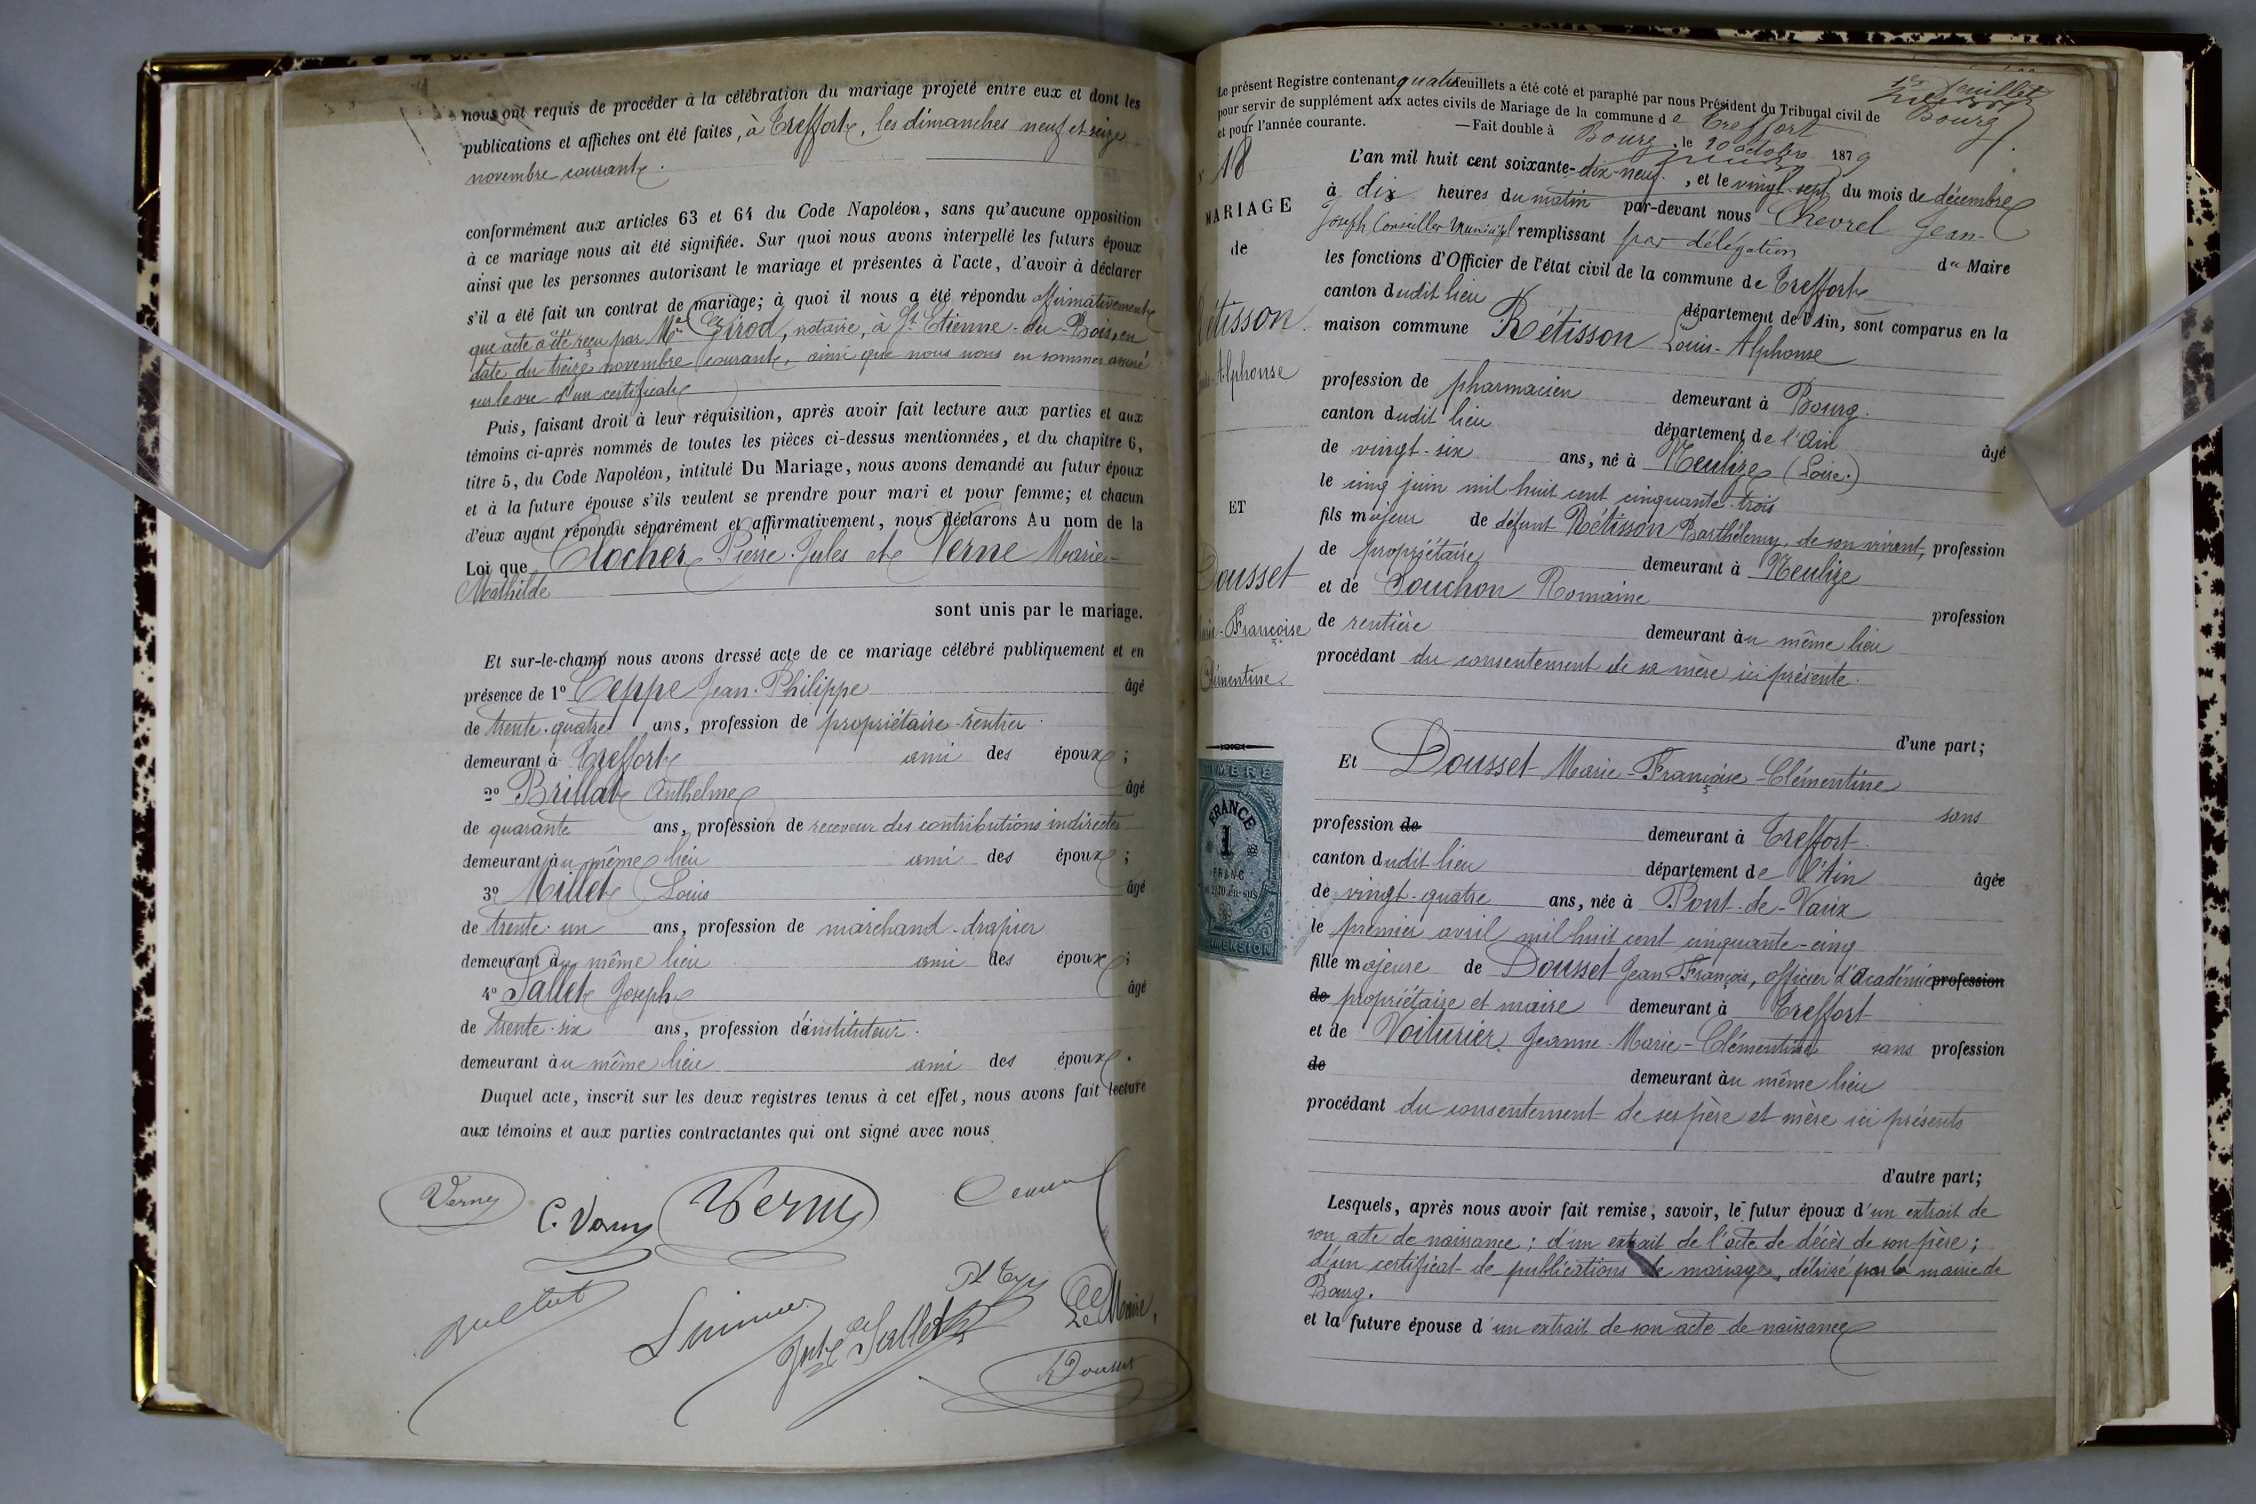 nous ont requis de procéder à la célébration du mariage projeté entre eux et dont les
publications et affiches ont été faites, à Treffort, les dimanches neuf et seize
novembre courant.
conformément aux articles 63 et 64 du Code Napoléon, sans qu'aucune opposition
à ce mariage nous ait été signifiée. Sur quoi nous avons interpellé les futurs époux
ainsi que les personnes autorisant le mariage et présentes à l'acte, d'avoir à déclarer
s'il a été fait un contrat de mariage; à quoi il nous a été répondu affirmativement
que acte a été reçu par Me Girod, notaire, à St Etienne-du-Bois, en
date du treize novembre courant, ainsi que nous nous en sommes assuré
sur le vu d'un certificat
Puis, faisant droit à leur réquisition, après avoir fait lecture aux parties et aux
témoins ci-après nommés de toutes les pièces ci-dessus mentionnées, et du chapitre 6,
titre 5, du Code Napoléon, intitulé Du Mariage, nous avons demandé au futur époux
et à la future épouse s'ils veulent se prendre pour mari et pour femme; et chacun
d'eux ayant répondu séparément et affirmativement, nous déclarons Au nom de la
Loi que Clocher Pierre-Jules et Verne Marie-
Mathilde
sont unis par le mariage.
Et sur-le-champ nous avons dressé acte de ce mariage célébré publiquement et en
présence de 1º Ceppe Jean-Philippe âgé
de trente-quatre ans, profession de propriétaire-rentier
demeurant à Treffort ami des époux;
2º Brillat Anthelme âgé
de quarante ans, profession de receveur des contributions indirectes
demeurant au même lieu ami des époux;
3º Millet Louis âgé
de trente-un ans, profession de marchand-drapier
demeurant au même lieu ami des époux;
4º Sallet Joseph âgé
de trente-six ans, profession d'instituteur.
demeurant au même lieu ami des époux.
Duquel acte, inscrit sur les deux registres tenus à cet effet, nous avons fait lecture
aux témoins et aux parties contractantes qui ont signé avec nous
Verne
Sallet
Le Maire,
Dousset
Le présent Registre contenant quatre feuillets a été coté et paraphé par nous Président du Tribunal civil de Bourg
1er feuillet
pour servir de supplément aux actes civils de Mariage de la commune de Treffort
et pour l'année courante. —Fait double à Bourg, le 10 octobre 1879
18
MARIAGE
de
Rétisson
Louis-Alphonse
ET
Dousset
Marie-Françoise
Clémentine.
L'an mil huit cent soixante-dix-neuf, et le vingt-sept du mois de décembre
à dix heures du matin par-devant nous Chevrel Jean-
Joseph Conseiller Municipal remplissant par délégation du Maire
les fonctions d'Officier de l'état civil de la commune de Treffort
canton dudit lieu département de l'Ain, sont comparus en la
maison commune Rétisson Louis-Alphonse
profession de pharmacien demeurant à Bourg.
canton dudit lieu département de l'Ain âgé
de vingt-six ans, né à Neulize (Loire.)
le cinq juin mil huit cent cinquante-trois
fils majeur de défunt Rétisson Barthélemy, de son vivant, profession
de propriétaire demeurant à Neulize
et de Souchon Romaine profession
de rentière demeurant au même lieu
procédant du consentement de sa mère ici présente.
d'une part;
Et Dousset Marie-Françoise-Clémentine
sans
profession de demeurant à Treffort
canton dudit lieu département de l'Ain âgée
de vingt-quatre ans, née à Pont-de-Vaux
le premier avril mil huit cent cinquante-cinq
fille majeure de Dousset Jean-François, officier d'académie profession
de propriétaire et maire demeurant à Treffort
et de Voiturier Jeanne-Marie-Clémentine sans profession
de demeurant au même lieu
procédant du consentement de ses père et mère ici présents
d'autre part;
Lesquels, après nous avoir fait remise, savoir, le futur époux d'un extrait de
son acte de naissance; d'un extrait de l'acte de décès de son père;
d'un certificat de publications de mariage, délivré par la mairie de
Bourg.
et la future épouse d'un extrait de son acte de naissance
TIMBRE
FRANCE
1
FRANC
DIMENSION